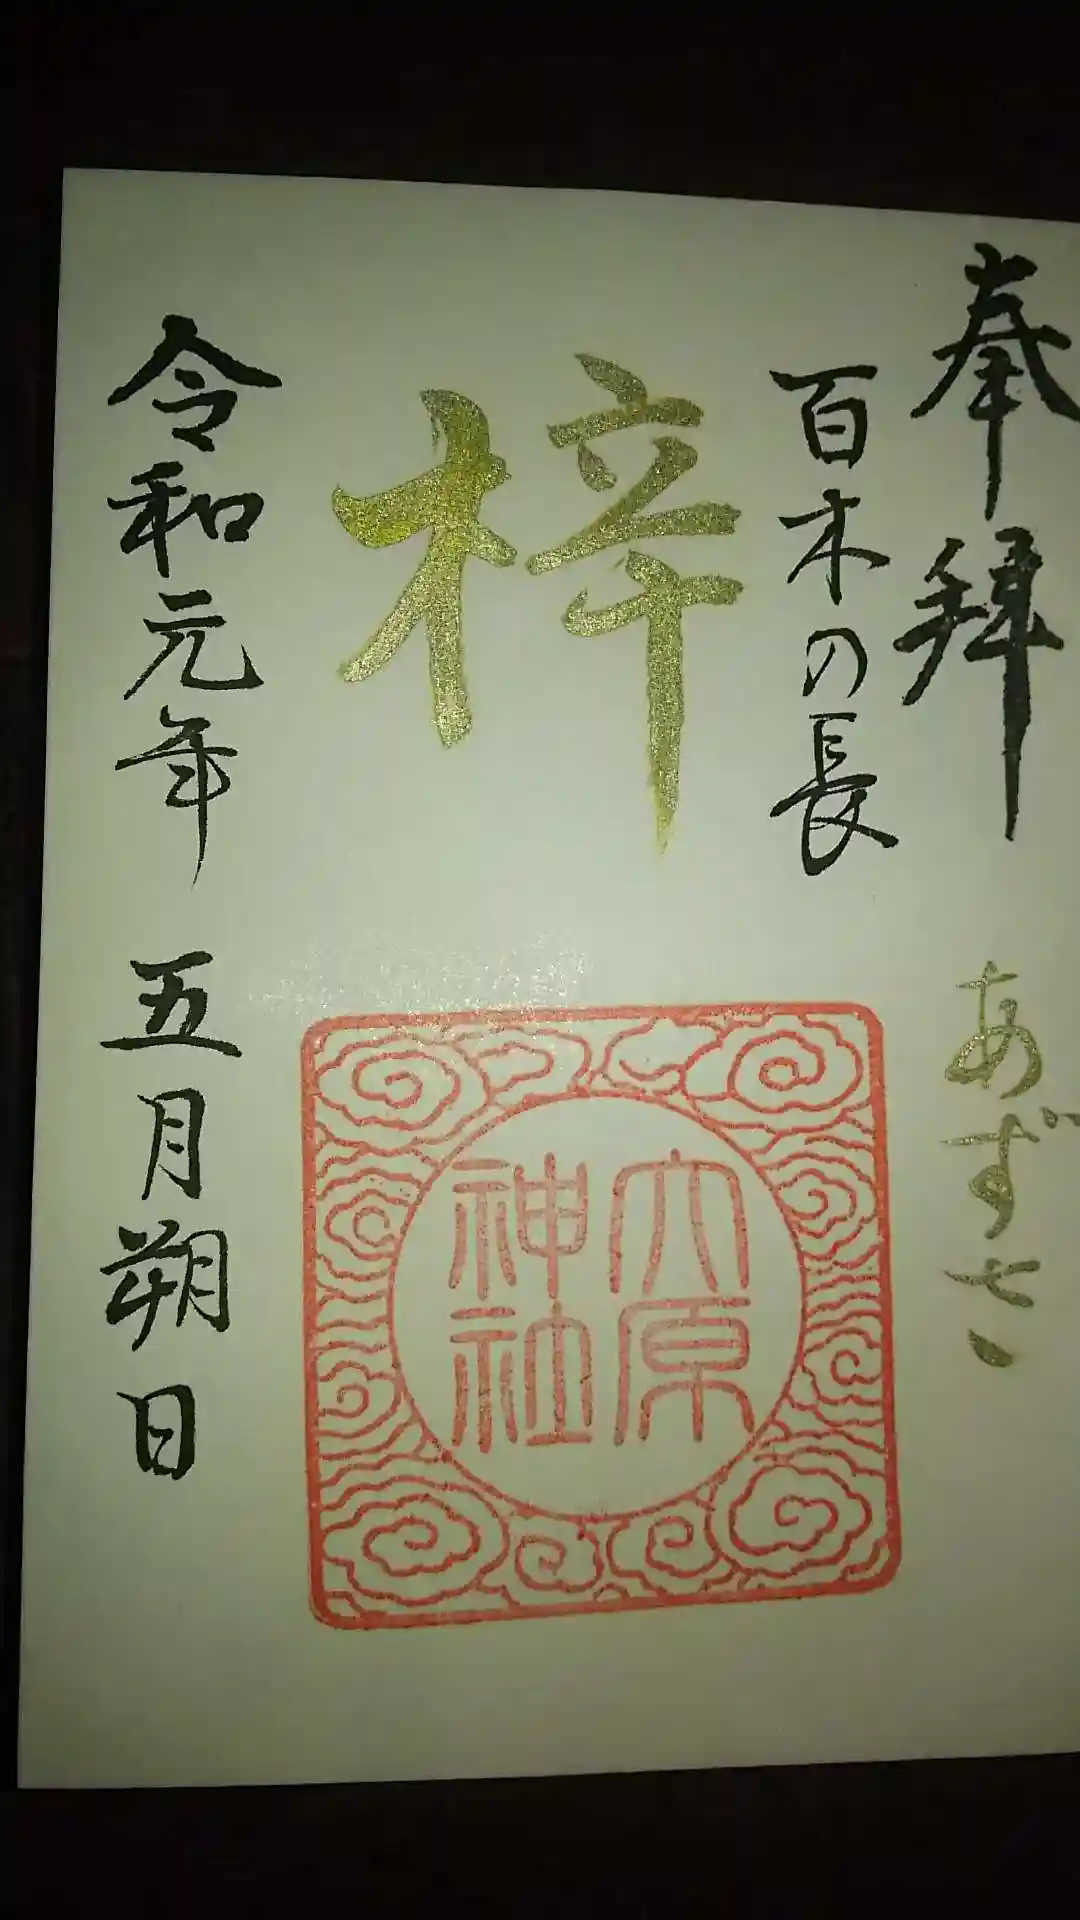 奉拝
あずさ
百木の長
梓
大原
神社
令和元年 五月朔日